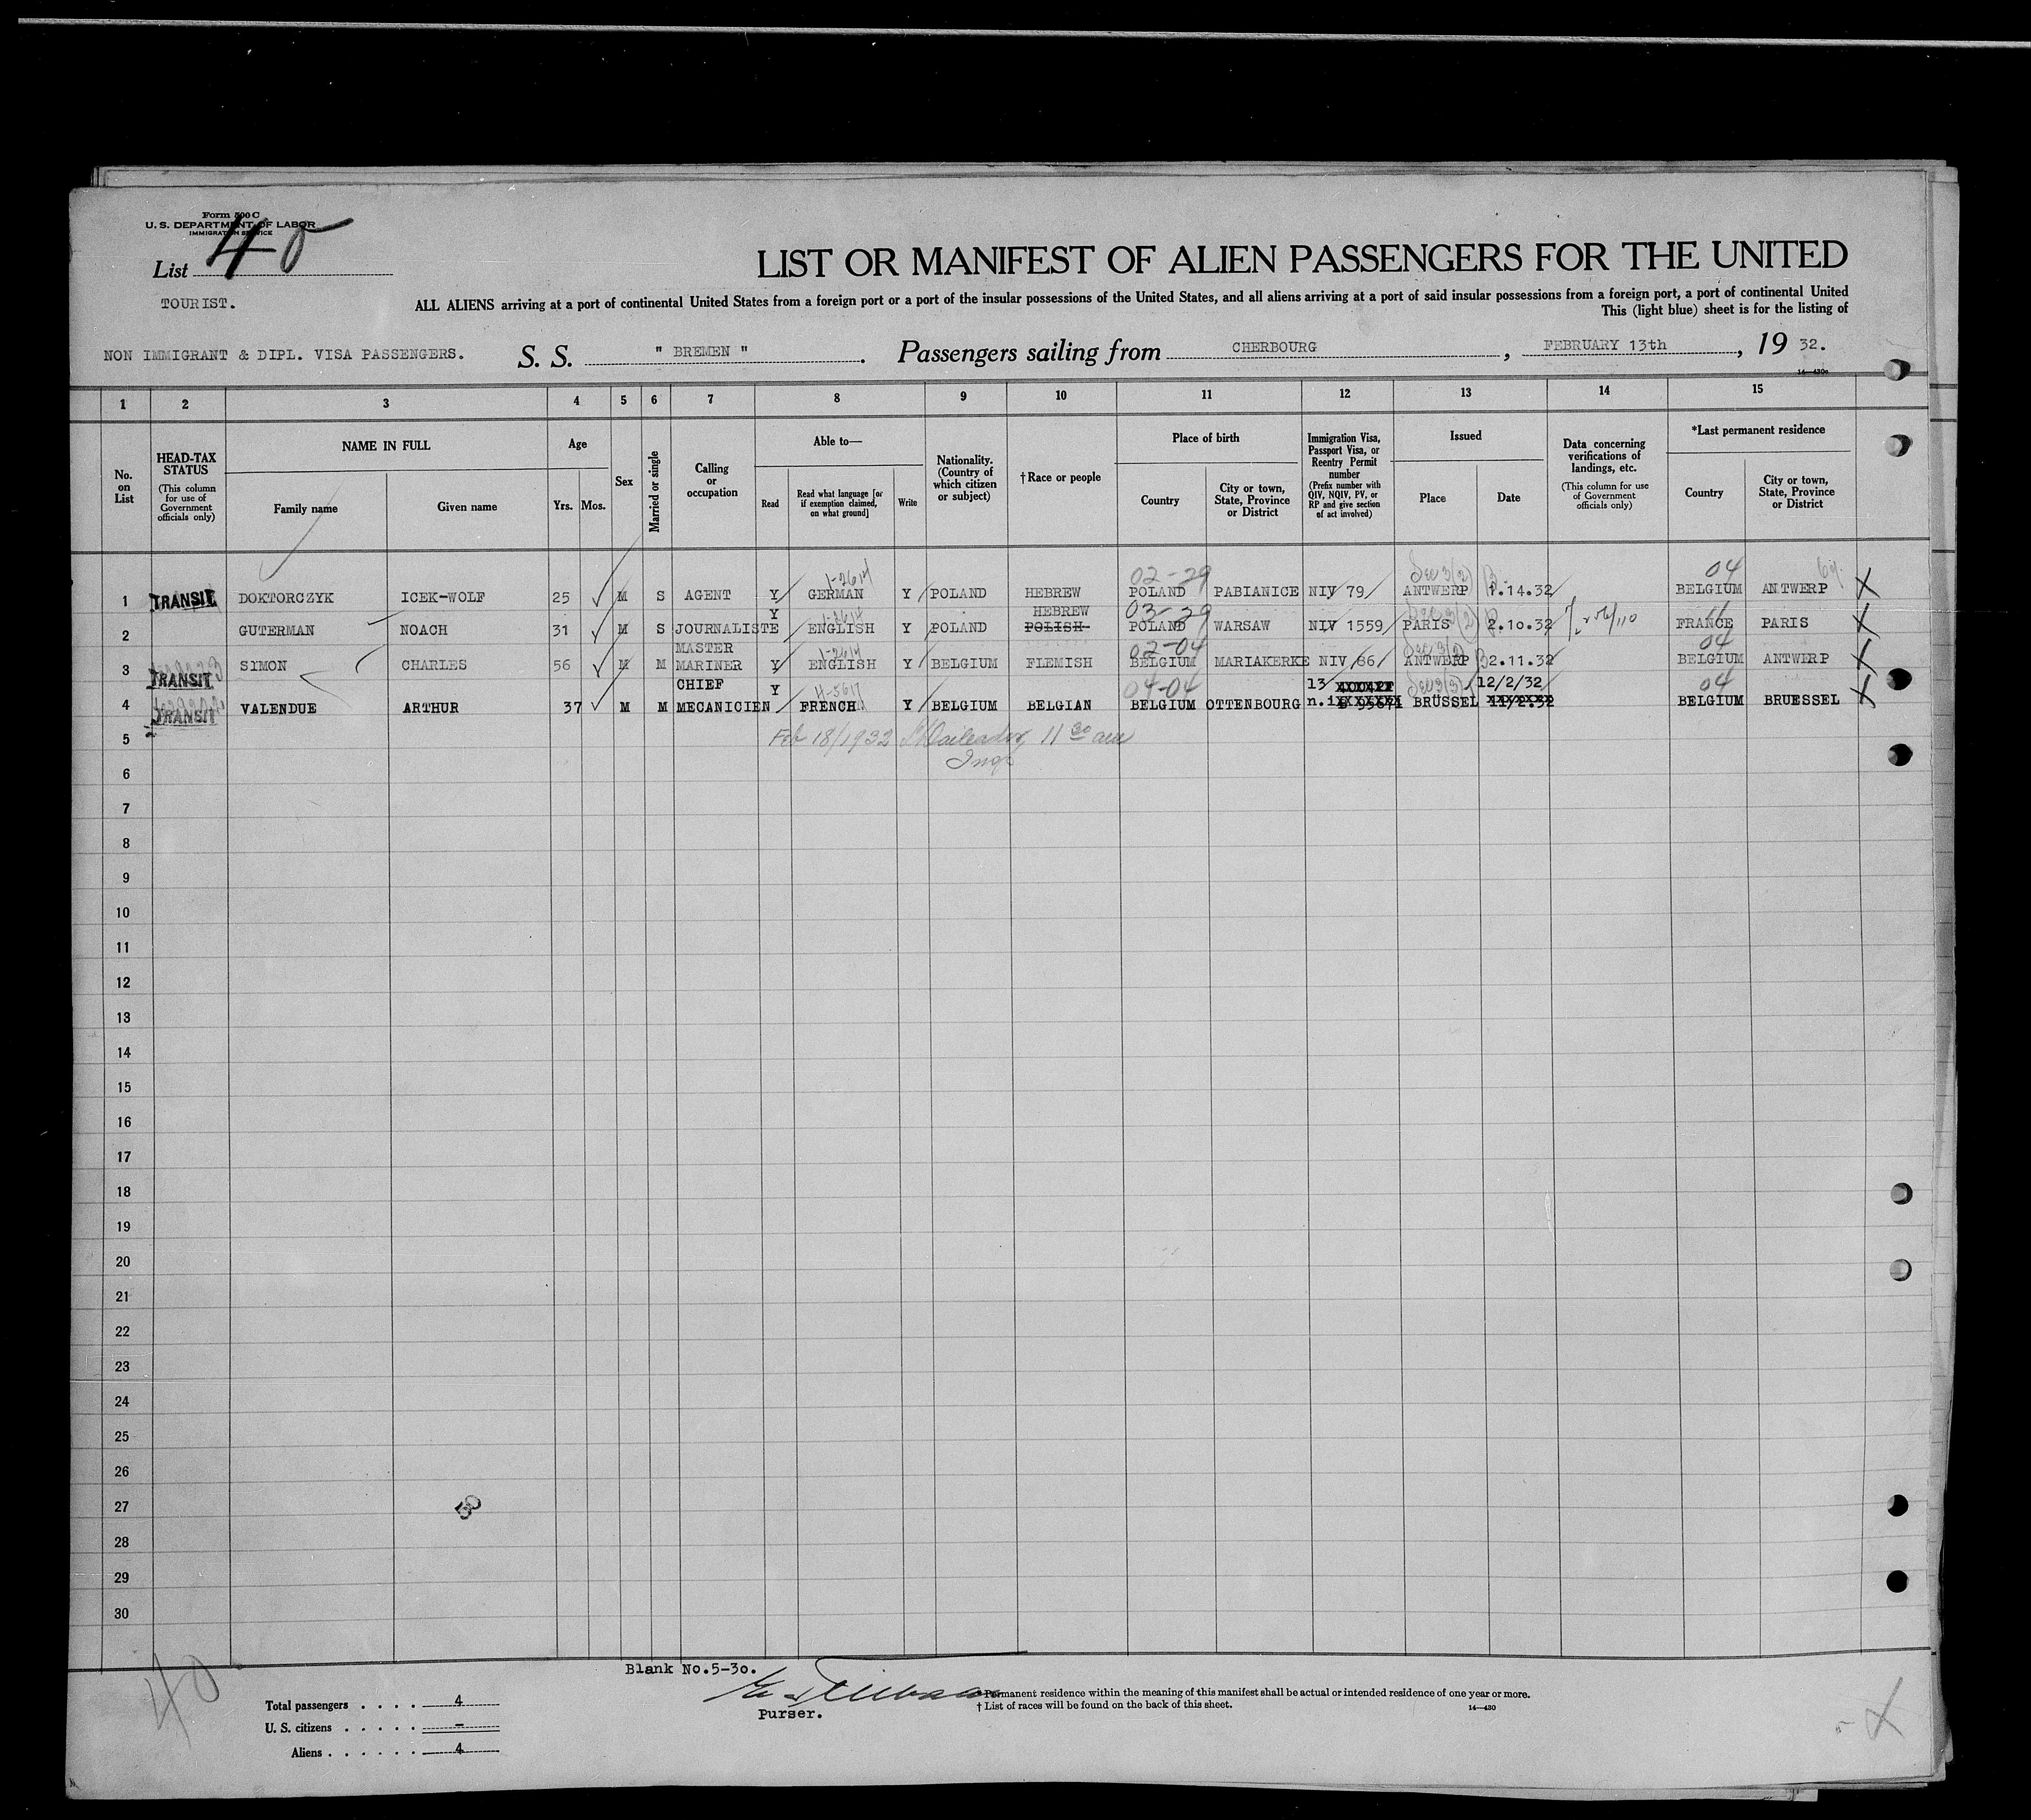 Form 500 C
U. S. DEPARTMENT OF LABOR
IMMIGRATION SERVICE
List 40
TOURIST.
LIST OR MANIFEST OF ALIEN PASSENGERS FOR THE UNITED
ALL ALIENS arriving at a port of continental United States from a foreign port or a port of the insular possessions of the United States, and all aliens arriving at a port of said insular possessions from a foreign port, a port of continental United
This (light blue) sheet is for the listing of
NON IMMIGRANT & DIPL. VISA PASSENGERS. S. S. " BREMEN " . Passengers sailing from CHERBOURG , FEBRUARY 13th , 19 32.
1 2 3 4 5 6 7 8 9 10 11 12 13 14 15
No. on List
HEAD-TAX STATUS (This column for use of Government officials only)
NAME IN FULL
Family name Given name
Age
Yrs. Mos.
Sex
Married or single
Calling or occupation
Able to—
Read Read what language [or if exemption claimed, on what ground] Write
Nationality. (Country of which citizen or subject)
† Race or people
Place of birth
Country City or town, State, Province or District
Immigration Visa, Passport Visa, or Reentry Permit number (Prefix number with QIV, NQIV, PV, or RP and give section of act involved)
Issued
Place Date
Data concerning verifications of landings, etc. (This column for use of Government officials only)
*Last permanent residence
Country City or town, State, Province or District
1-2614 02-29 Sec 3(2) 04
1 TRANSIT DOKTORCZYK ICEK-WOLF 25 M S AGENT Y GERMAN Y POLAND HEBREW POLAND PABIANICE NIV 79 ANTWERP 1.14.32 BELGIUM ANTWERP X
Y 1-2614 HEBREW 03-29
2 GUTERMAN NOACH 31 M S JOURNALISTE ENGLISH Y POLAND POLISH POLAND WARSAW NIV 1559 PARIS 2.10.32 FRANCE PARIS X
MASTER 1-2614 02-04 04
3 TRANSIT SIMON CHARLES 56 M M MARINER Y ENGLISH Y BELGIUM FLEMISH BELGIUM MARIAKERKE NIV 86 ANTWERP 2.11.32 BELGIUM ANTWERP X
CHIEF Y 04-04 13 Sec 3(3) 12/2/32 04
4 TRANSIT VALENDUE ARTHUR 37 M M MECANICIEN FRENCH Y BELGIUM BELGIAN BELGIUM OTTENBOURG BRÜSSEL BELGIUM BRUESSEL X
5 Feb 18/1932 11 30 am
Insp
6
7
8
9
10
11
12
13
14
15
16
17
18
19
20
21
22
23
24
25
26
27
28
29
30
40
Blank No.5-30.
Purser.
Total passengers . . . . 4
U. S. citizens . . . . . –
Aliens . . . . . . 4
* Permanent residence within the meaning of this manifest shall be actual or intended residence of one year or more.
† List of races will be found on the back of this sheet.
14—430